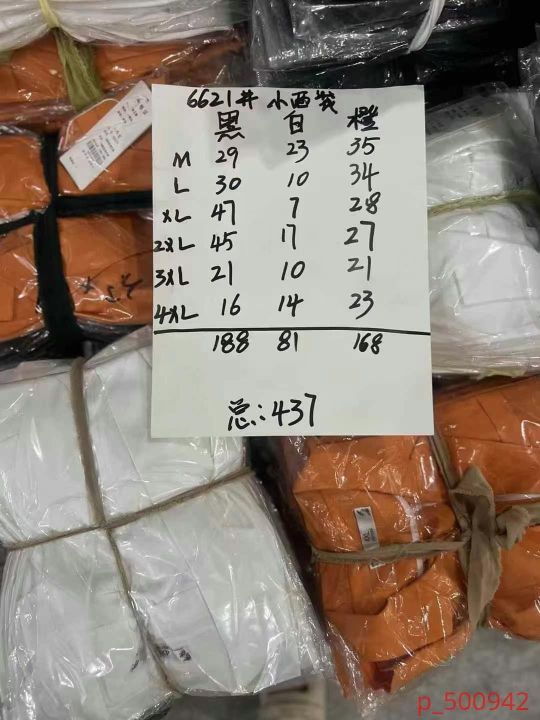 6621# 小西装
黑 白 橙
M 29 23 35
L 30 10 34
XL 47 7 28
2XL 45 17 27
3XL 21 10 21
4XL 16 14 23
188 81 168
总:437
p_500942